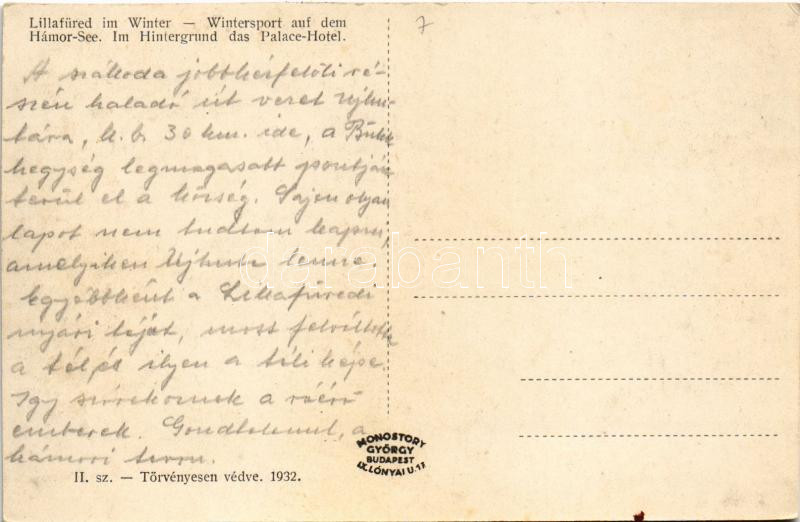 Lillafüred im Winter — Wintersport auf dem
Hámor-See. Im Hintergrund das Palace-Hotel.
7
A szálloda jobbkézfelöli ré-
szén haladó út vezet Ujhu-
tára, k. b. 30 km. ide, a Bükk
hegység legmagasabb pontján
terül el a község. Sajnos olyan
lapot nem tudtam kapni,
amelyiken Ujhuta lenne.
Egyébként a Lillafüredi
nyári képét, most felváltotta
a tél, és ilyen a téli képe.
Igy szórakoznak a ráérő
emberek. a
hámori
II. sz. — Törvényesen védve. 1932.
MONOSTORY
GYÖRGY
BUDAPEST
IX. LÓNYAI U. 17
darabanth